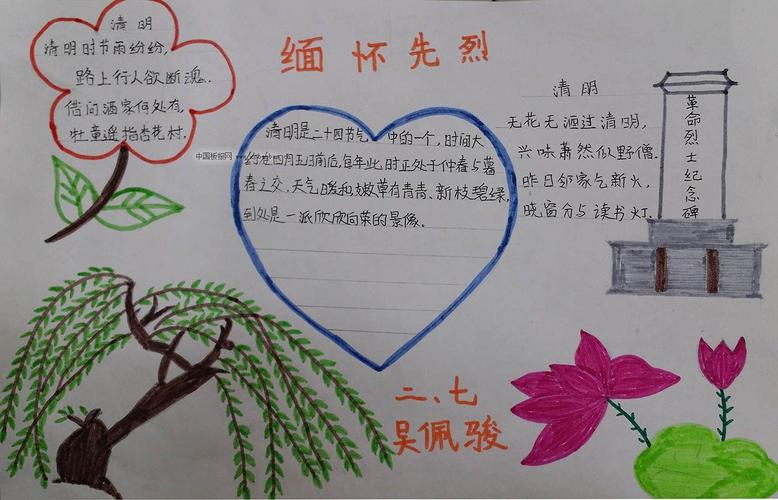 缅怀先烈
清明
清明时节雨纷纷,
路上行人欲断魂.
借问酒家何处有,
牡童遥指杏花村.
中国板报网
清明是二十四节气 中的一个,时间大
约在四月五日前后,每年此时正处于仲春与暮
春之交,天气暖和,嫩草有青青、新枝碧绿,
到处是一派欣欣向荣的景像.
清明
无花无酒过清明,
兴味萧然似野僧.
昨日邻家乞新火,
晓窗分与读书灯.
革命烈士纪念碑
二、七
吴佩骏